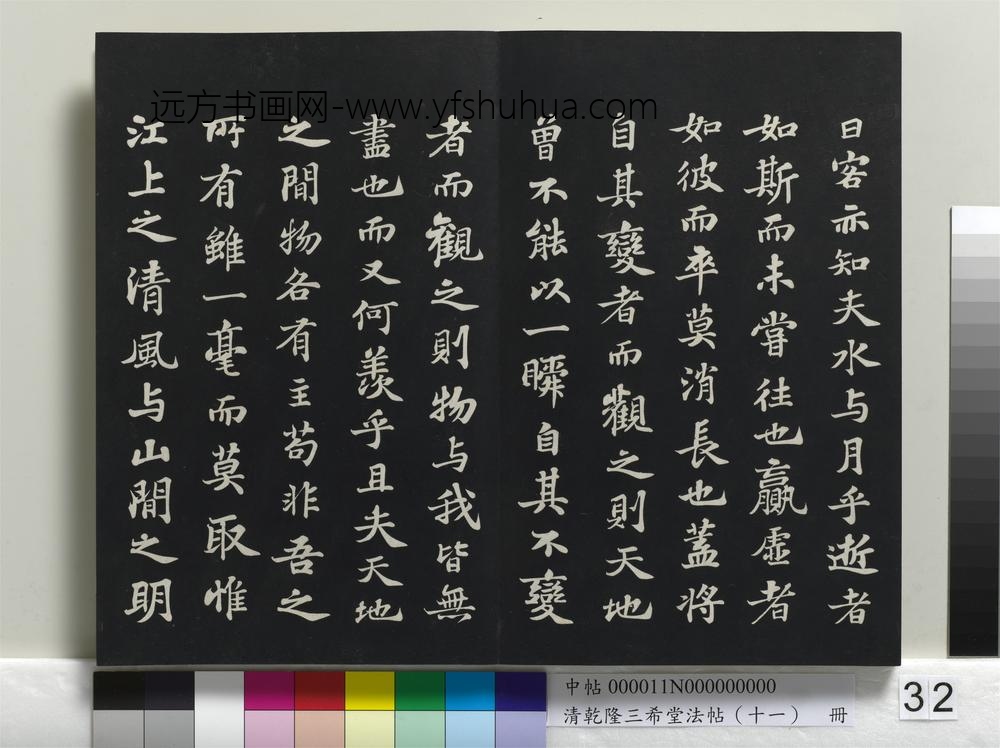 远方书画网-www.yfshuhua.com
日客亦知夫水与月乎逝者
如斯而未嘗往也贏虛者
如彼而卒莫消長也蓋將
自其變者而觀之則天地
曾不能以一瞬自其不變
者而觀之則物与我皆無
盡也而又何羨乎且夫天地
之間物各有主苟非吾之
所有雖一毫而莫取惟
江上之清風与山間之明
中帖000011N000000000
清乾隆三希堂法帖（十一） 冊
32